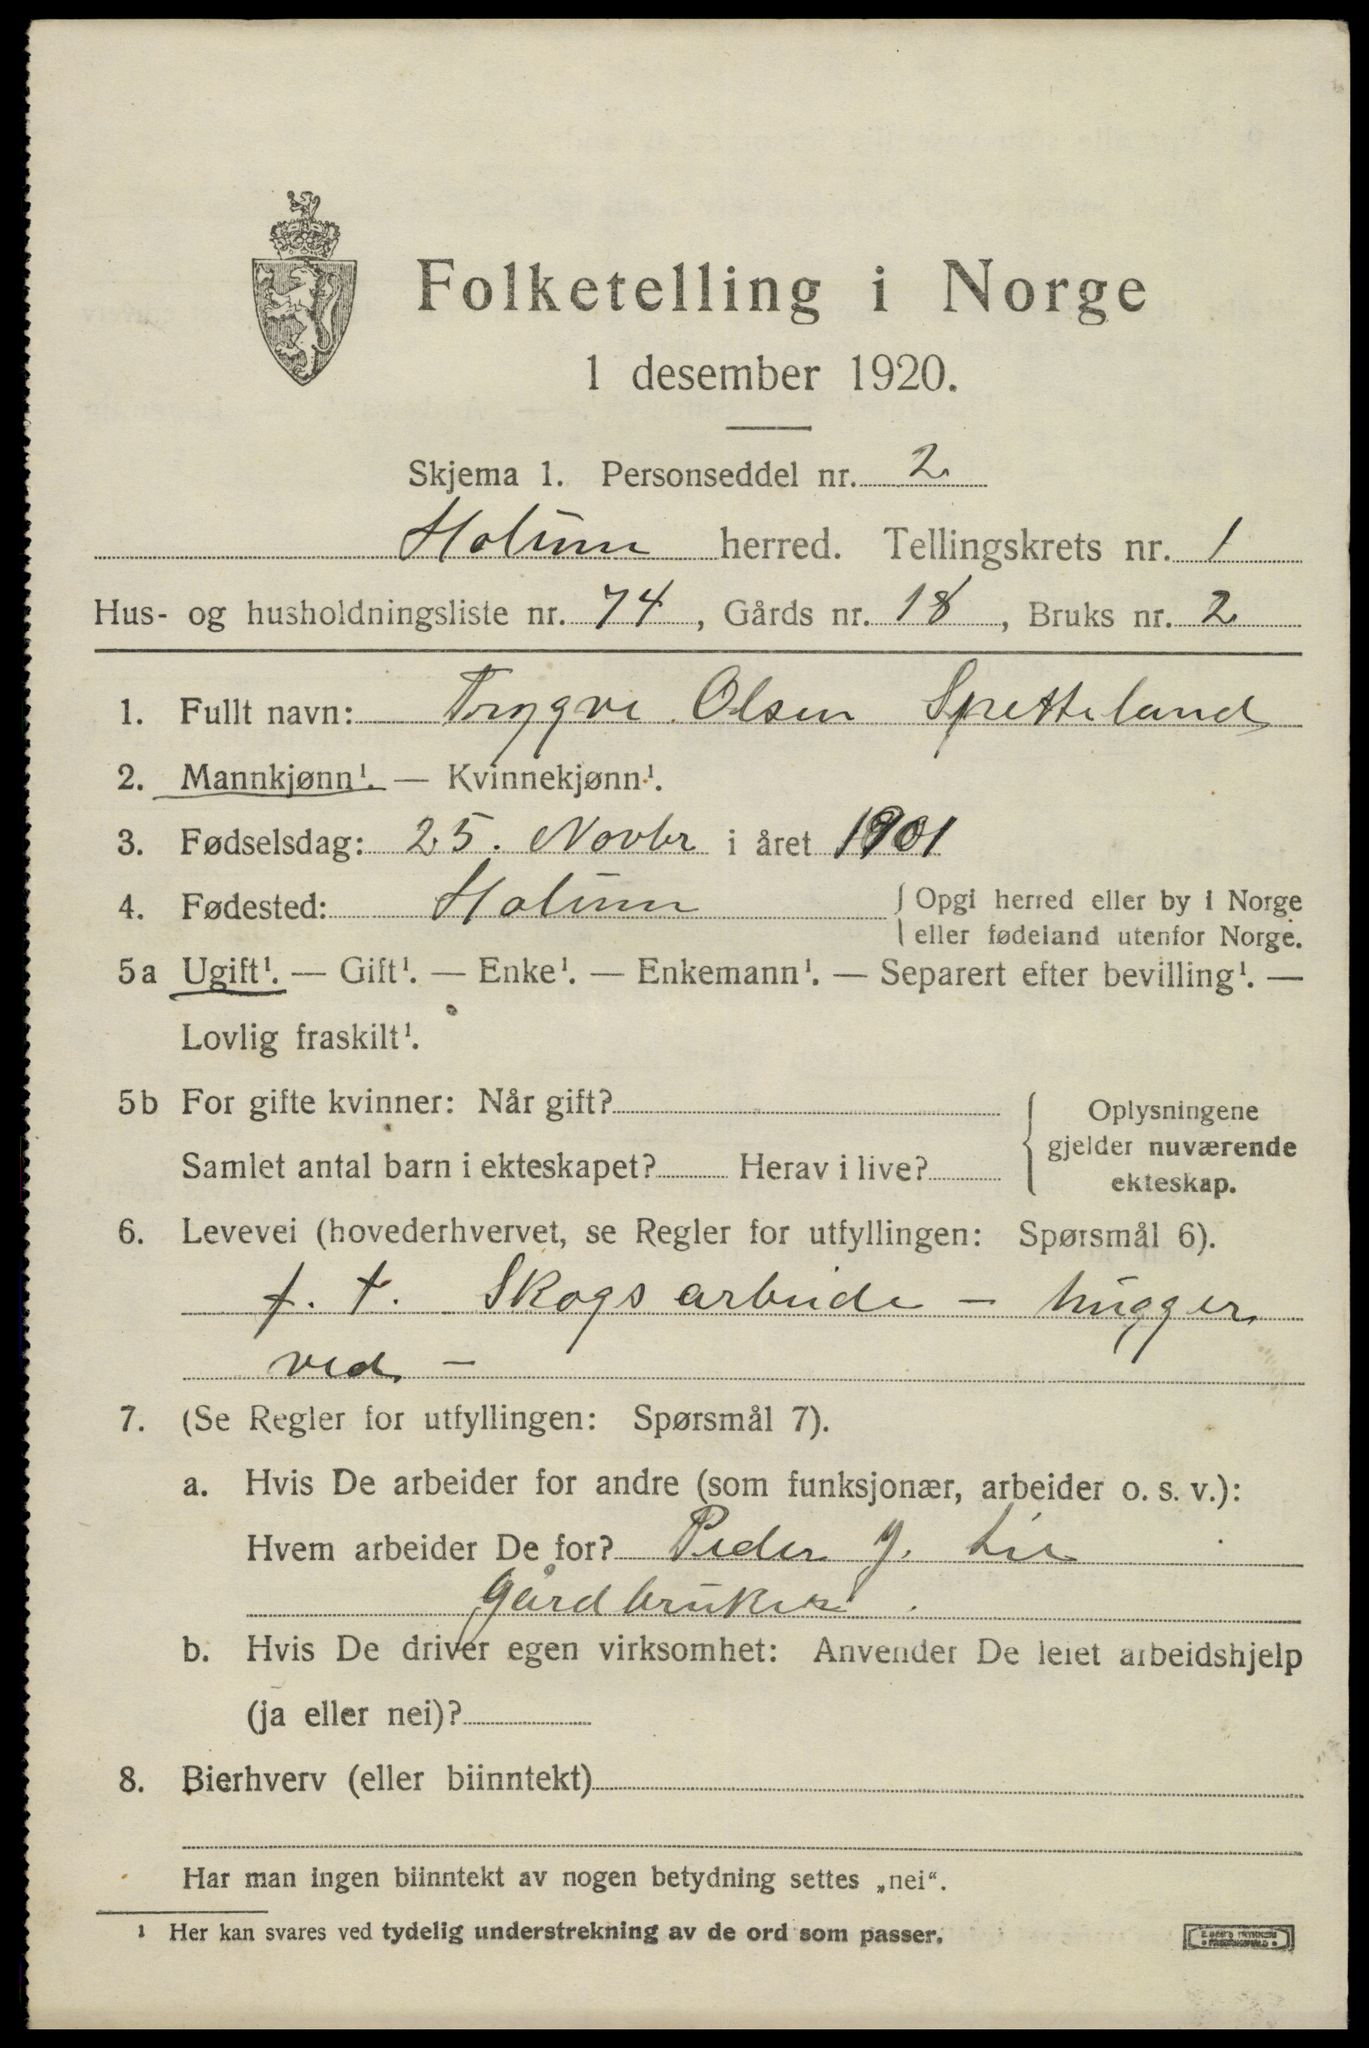 Folketelling i Norge
1 desember 1920.
Skjema 1. Personseddel nr. 2
Holum herred. Tellingskrets nr. 1
Hus- og husholdningsliste nr. 74, Gårds nr. 18, Bruks nr. 2
1. Fullt navn: Trygve Olsen Spetteland
2. Mannkjønn¹. — Kvinnekjønn¹.
3. Fødselsdag: 25. Novbr i året 1901
4. Fødested: Holum { Opgi herred eller by i Norge
eller fødeland utenfor Norge.
5a Ugift¹. — Gift¹. — Enke¹. — Enkemann¹. — Separert efter bevilling¹. —
Lovlig fraskilt¹.
5b For gifte kvinner: Når gift?
Samlet antal barn i ekteskapet? Herav i live?
Oplysningene
gjelder nuværende
ekteskap.
6. Levevei (hovederhvervet, se Regler for utfyllingen: Spørsmål 6).
f. t. Skogsarbeide – hugger
ved –
7. (Se Regler for utfyllingen: Spørsmål 7).
a. Hvis De arbeider for andre (som funksjonær, arbeider o. s. v.):
Hvem arbeider De for? Peder J. Lie
Gårdbruker.
b. Hvis De driver egen virksomhet: Anvender De leiet arbeidshjelp
(ja eller nei)?
8. Bierhverv (eller biinntekt)
Har man ingen biinntekt av nogen betydning settes „nei“.
¹ Her kan svares ved tydelig understrekning av de ord som passer.